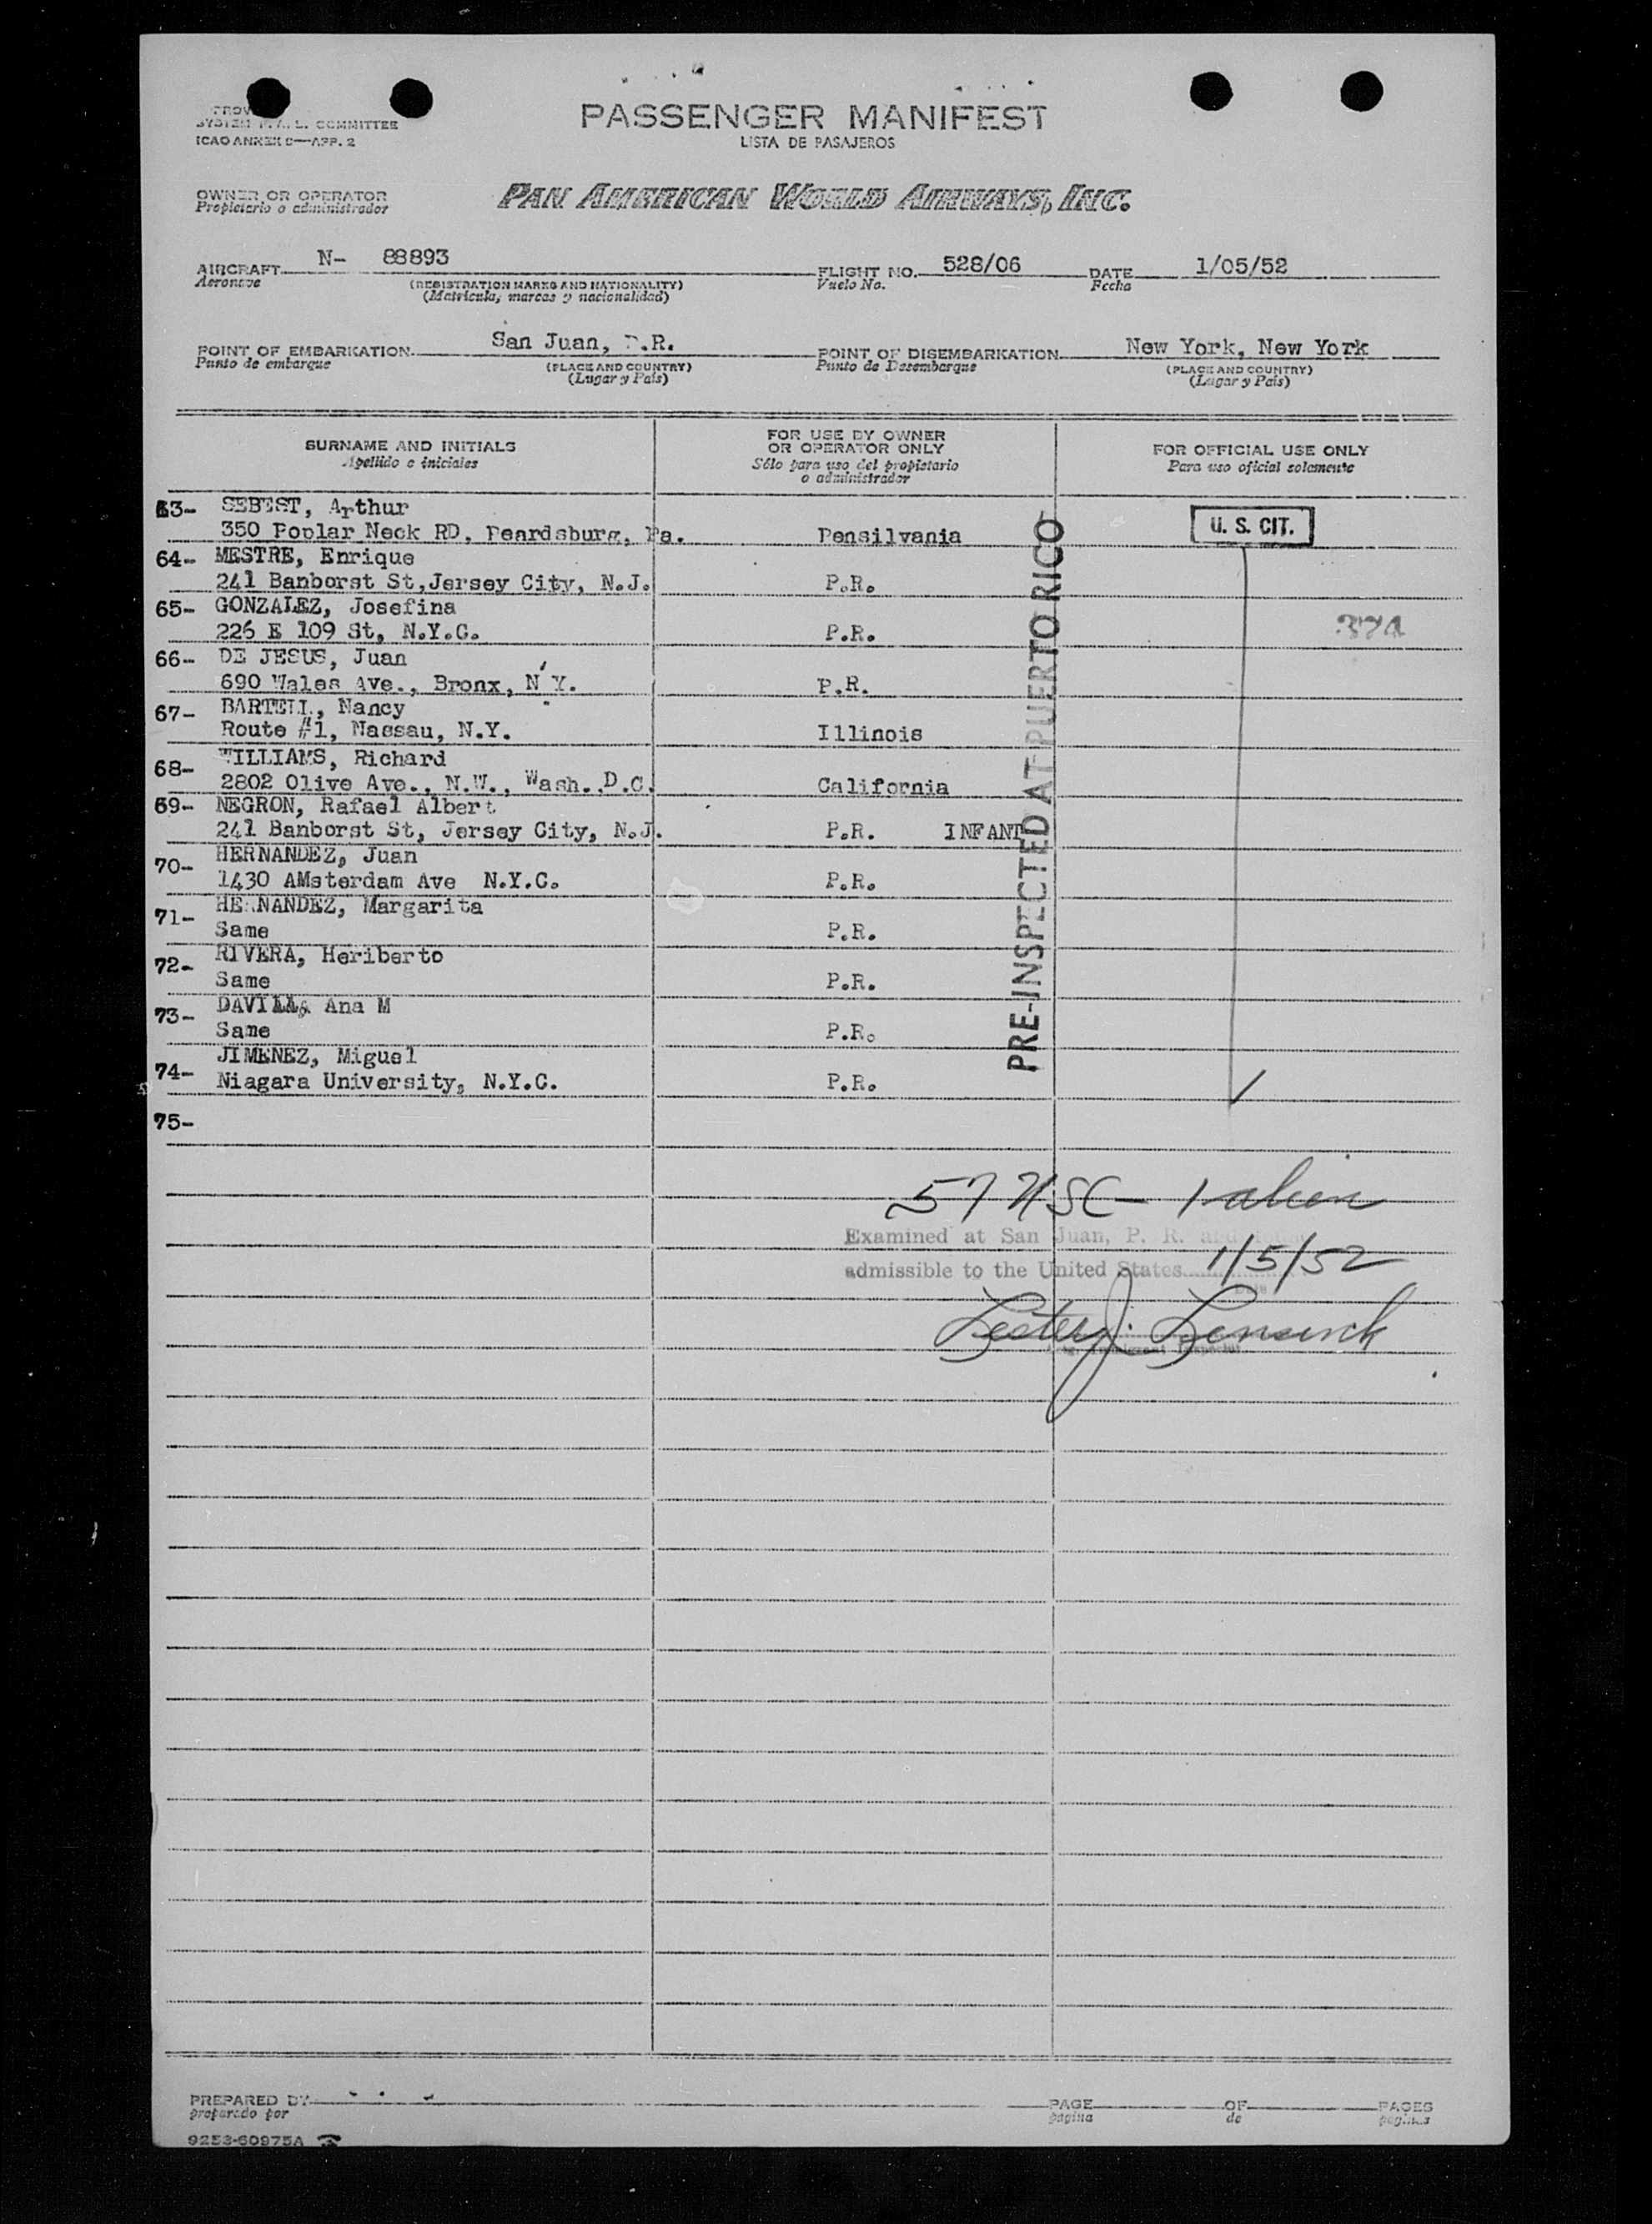 SYSTEM F.A.L. COMMITTEE
ICAO ANNEX 9—APP. 2
PASSENGER MANIFEST
LISTA DE PASAJEROS
OWNER OR OPERATOR
Propietario o administrador
PAN AMERICAN WORLD AIRWAYS, INC.
AIRCRAFT N- 88893 FLIGHT NO. 528/06 DATE 1/05/52
Aeronave (REGISTRATION MARKS AND NATIONALITY) Vuelo No. Fecha
(Matricula, marcas y nacionalidad)
POINT OF EMBARKATION San Juan, P.R. POINT OF DISEMBARKATION New York, New York
Punto de embarque (PLACE AND COUNTRY) Punto de Desembarque (PLACE AND COUNTRY)
(Lugar y País) (Lugar y País)
SURNAME AND INITIALS
Apellido e iniciales
FOR USE BY OWNER
OR OPERATOR ONLY
Sólo para uso del propietario
o administrador
FOR OFFICIAL USE ONLY
Para uso oficial solamente
63- SEBEST, Arthur
350 Poplar Neck RD, Peardsburg, Pa. Pensilvania U. S. CIT.
64- MESTRE, Enrique
241 Banborst St,Jersey City, N.J. P.R.
65- GONZALEZ, Josefina
226 E 109 St, N.Y.C. P.R.
66- DE JESUS, Juan
690 Wales Ave., Bronx, N Y. P.R.
67- BARTELL, Nancy
Route #1, Nassau, N.Y. Illinois
68- WILLIAMS, Richard
2802 Olive Ave., N.W., Wash. D.C. California
69- NEGRON, Rafael Albert
241 Banborst St, Jersey City, N.J. P.R. INFANT
70- HERNANDEZ, Juan
1430 AMsterdam Ave N.Y.C. P.R.
71- HERNANDEZ, Margarita
Same P.R.
72- RIVERA, Heriberto
Same P.R.
73- DAVILA, Ana M
Same P.R.
74- JIMENEZ, Miguel
Niagara University, N.Y.C. P.R.
75-
PRE-INSPECTED AT PUERTO RICO
57 USC - 1 alien
Examined at San Juan, P. R. and
admissible to the United States 1/5/52
Date
Lester J.
PREPARED BY PAGE OF PAGES
preparado por página de páginas
9253-60975A